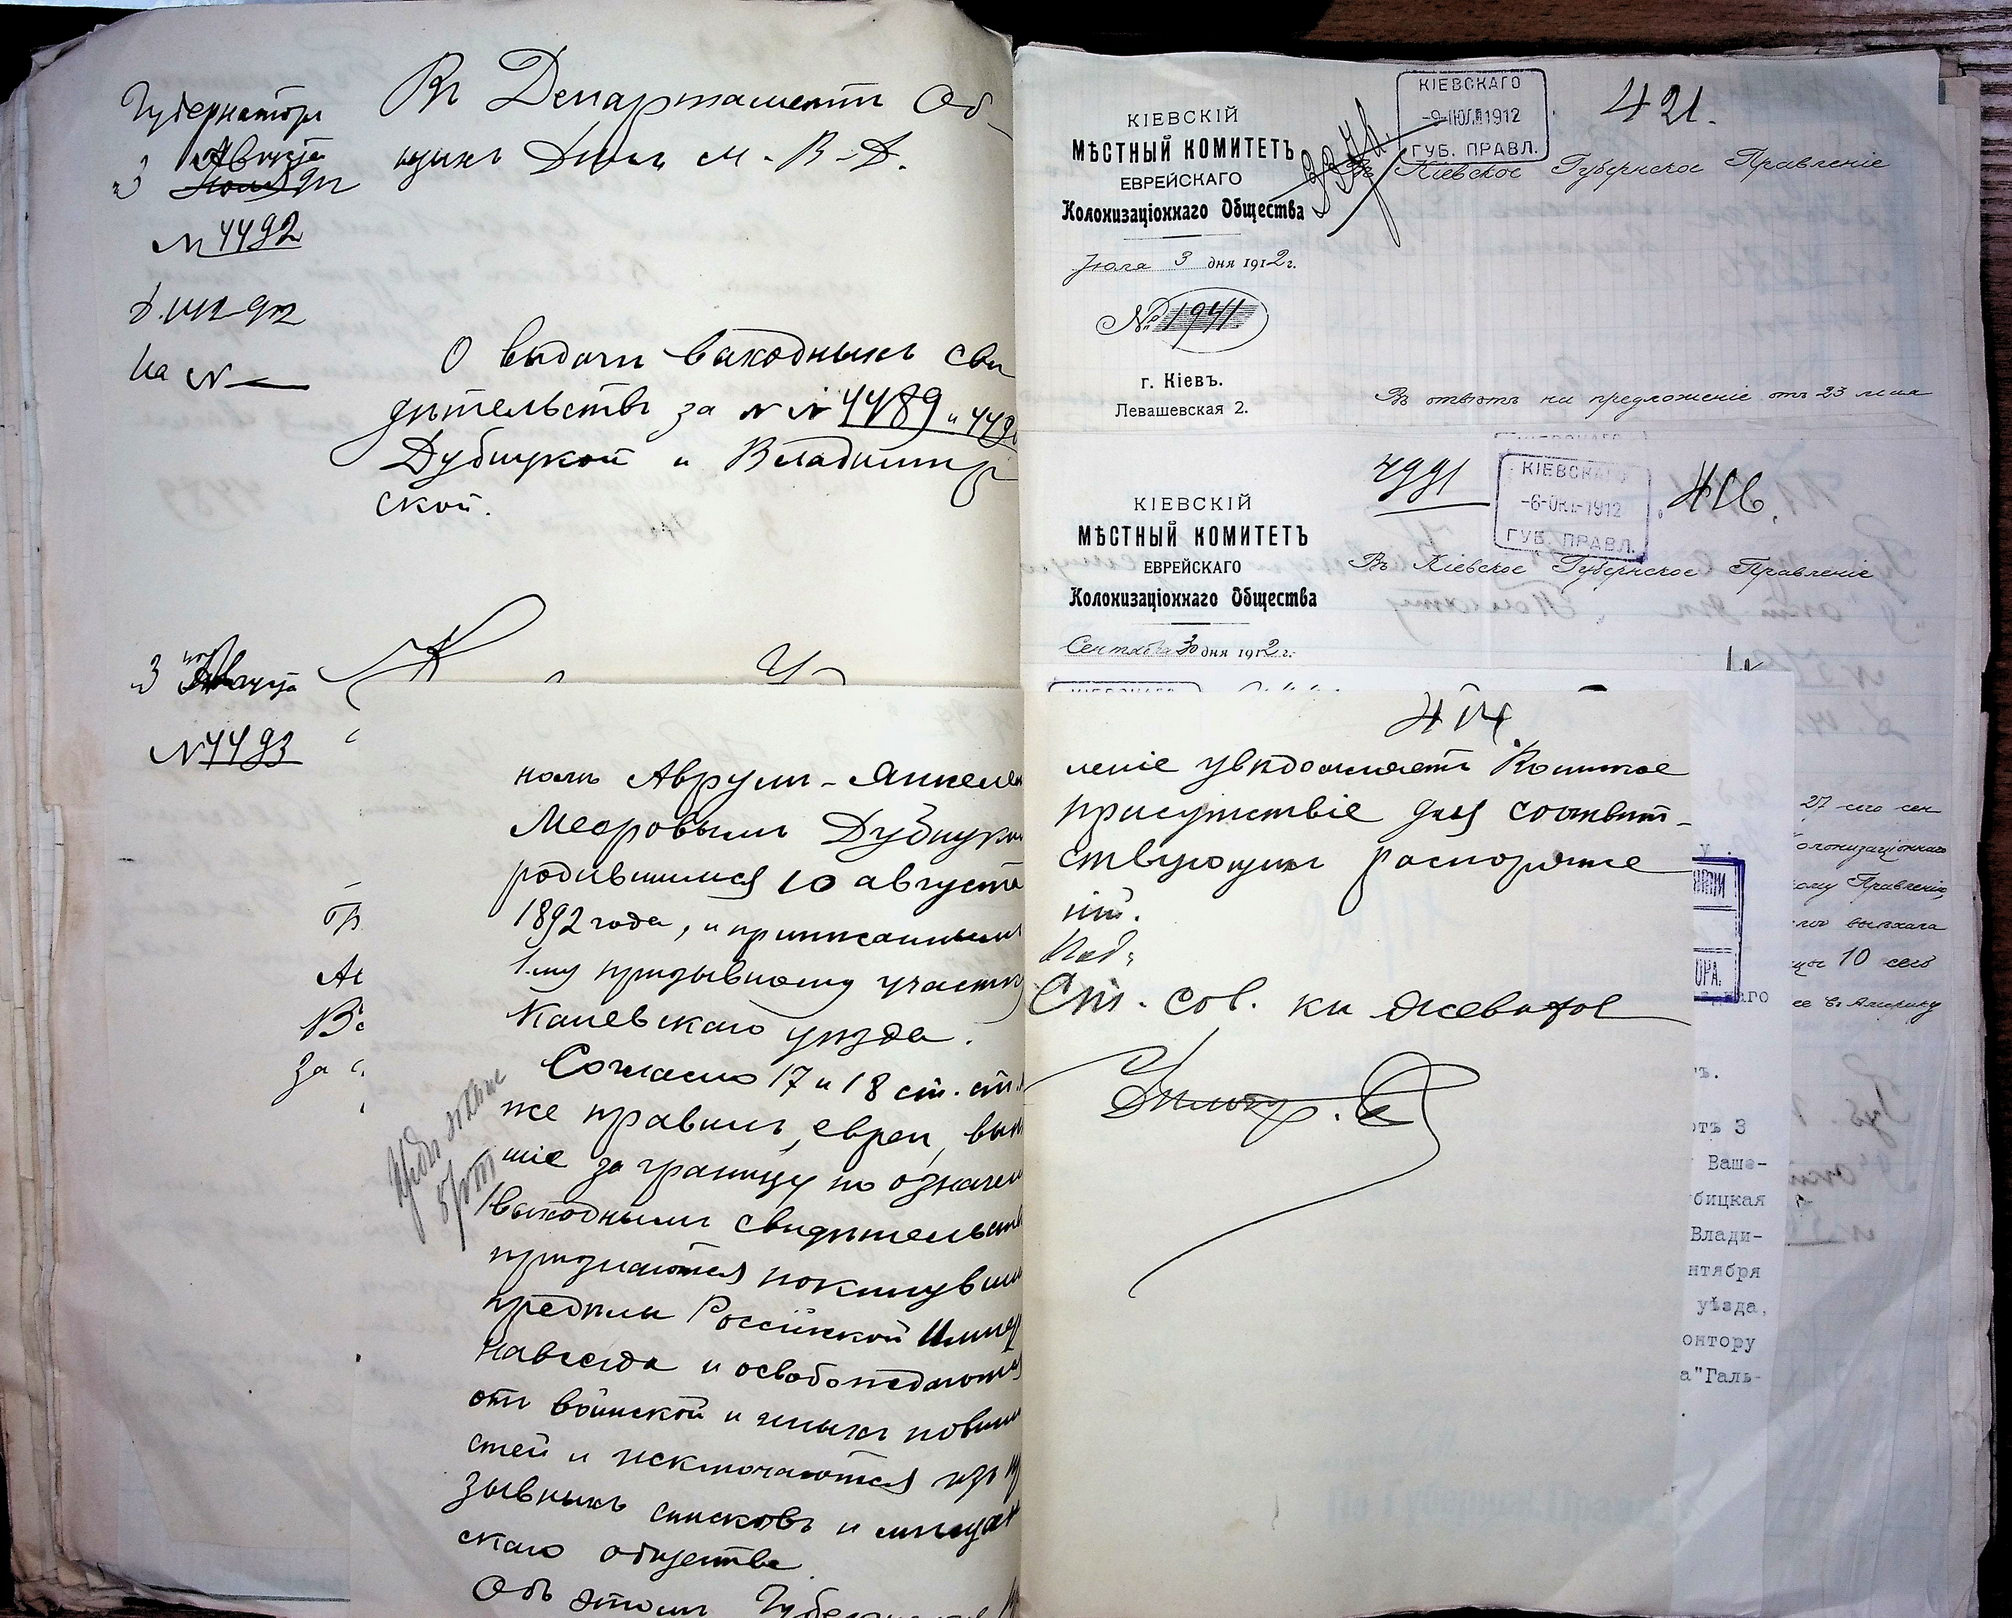 Губернаторъ
Августа
3
№ 4492
На №
Въ Департаментъ Об-
щихъ Дѣлъ М.В.Д.
О выдачи выходныхъ сви
дѣтельствъ за №№ 4489 и 449
Дубицкой и Владимір
ской.
3 Августа
№ 4493
КІЕВСКІЙ
МѢСТНЫЙ КОМИТЕТЪ
ЕВРЕЙСКАГО
Колонизаціоннаго Общества
Іюля 3 дня 1912 г.
№ 1941
г. Кіевъ.
Левашевская 2.
КІЕВСКАГО
-9-ІЮЛЯ 1912
ГУБ. ПРАВЛ.
421.
Въ Кіевское Губернское Правленіе
Въ отвѣтъ на предложеніе отъ 23 мая
КІЕВСКІЙ
МѢСТНЫЙ КОМИТЕТЪ
ЕВРЕЙСКАГО
Колонизаціоннаго Общества
Сентября 30 дня 1912 г.
КІЕВСКАГО
-6-ОКТ-1912
ГУБ. ПРАВЛ.
416.
Въ Кіевское Губернское Правленіе
номъ Аврумъ-Янкеле
Меоровымъ Дубицки
родившимся 10 августа
1892 года, и приписаннымъ
1-му призывному участку
Каневскаго уѣзда.
Согласно 17 и 18 ст. ст.
же правилъ, евреи, вые
шіе за границу по означен
выходнымъ свидѣтельств
признаются покинувши
предѣлы Россійской Импер
навсегда и освобождаются
отъ воинской и иныхъ повин
стей и исключаются изъ п
зывныхъ списковъ и мѣщан
скаго общества
Объ этомъ Губернск
414
леніе увѣдомляетъ Воинское
присутствіе для соотвѣт-
ствующихъ распоряже
ній.
Под.
Ст. Сов. кн Жеваховъ
27 сего сен
олонизаціоннаго
ому Правленію,
выѣхала
10 сего
въ Америку
ОРА.
отъ 3
Ваше-
бицкая
Влади-
нтября
уѣзда,
онтору
а"Галь-